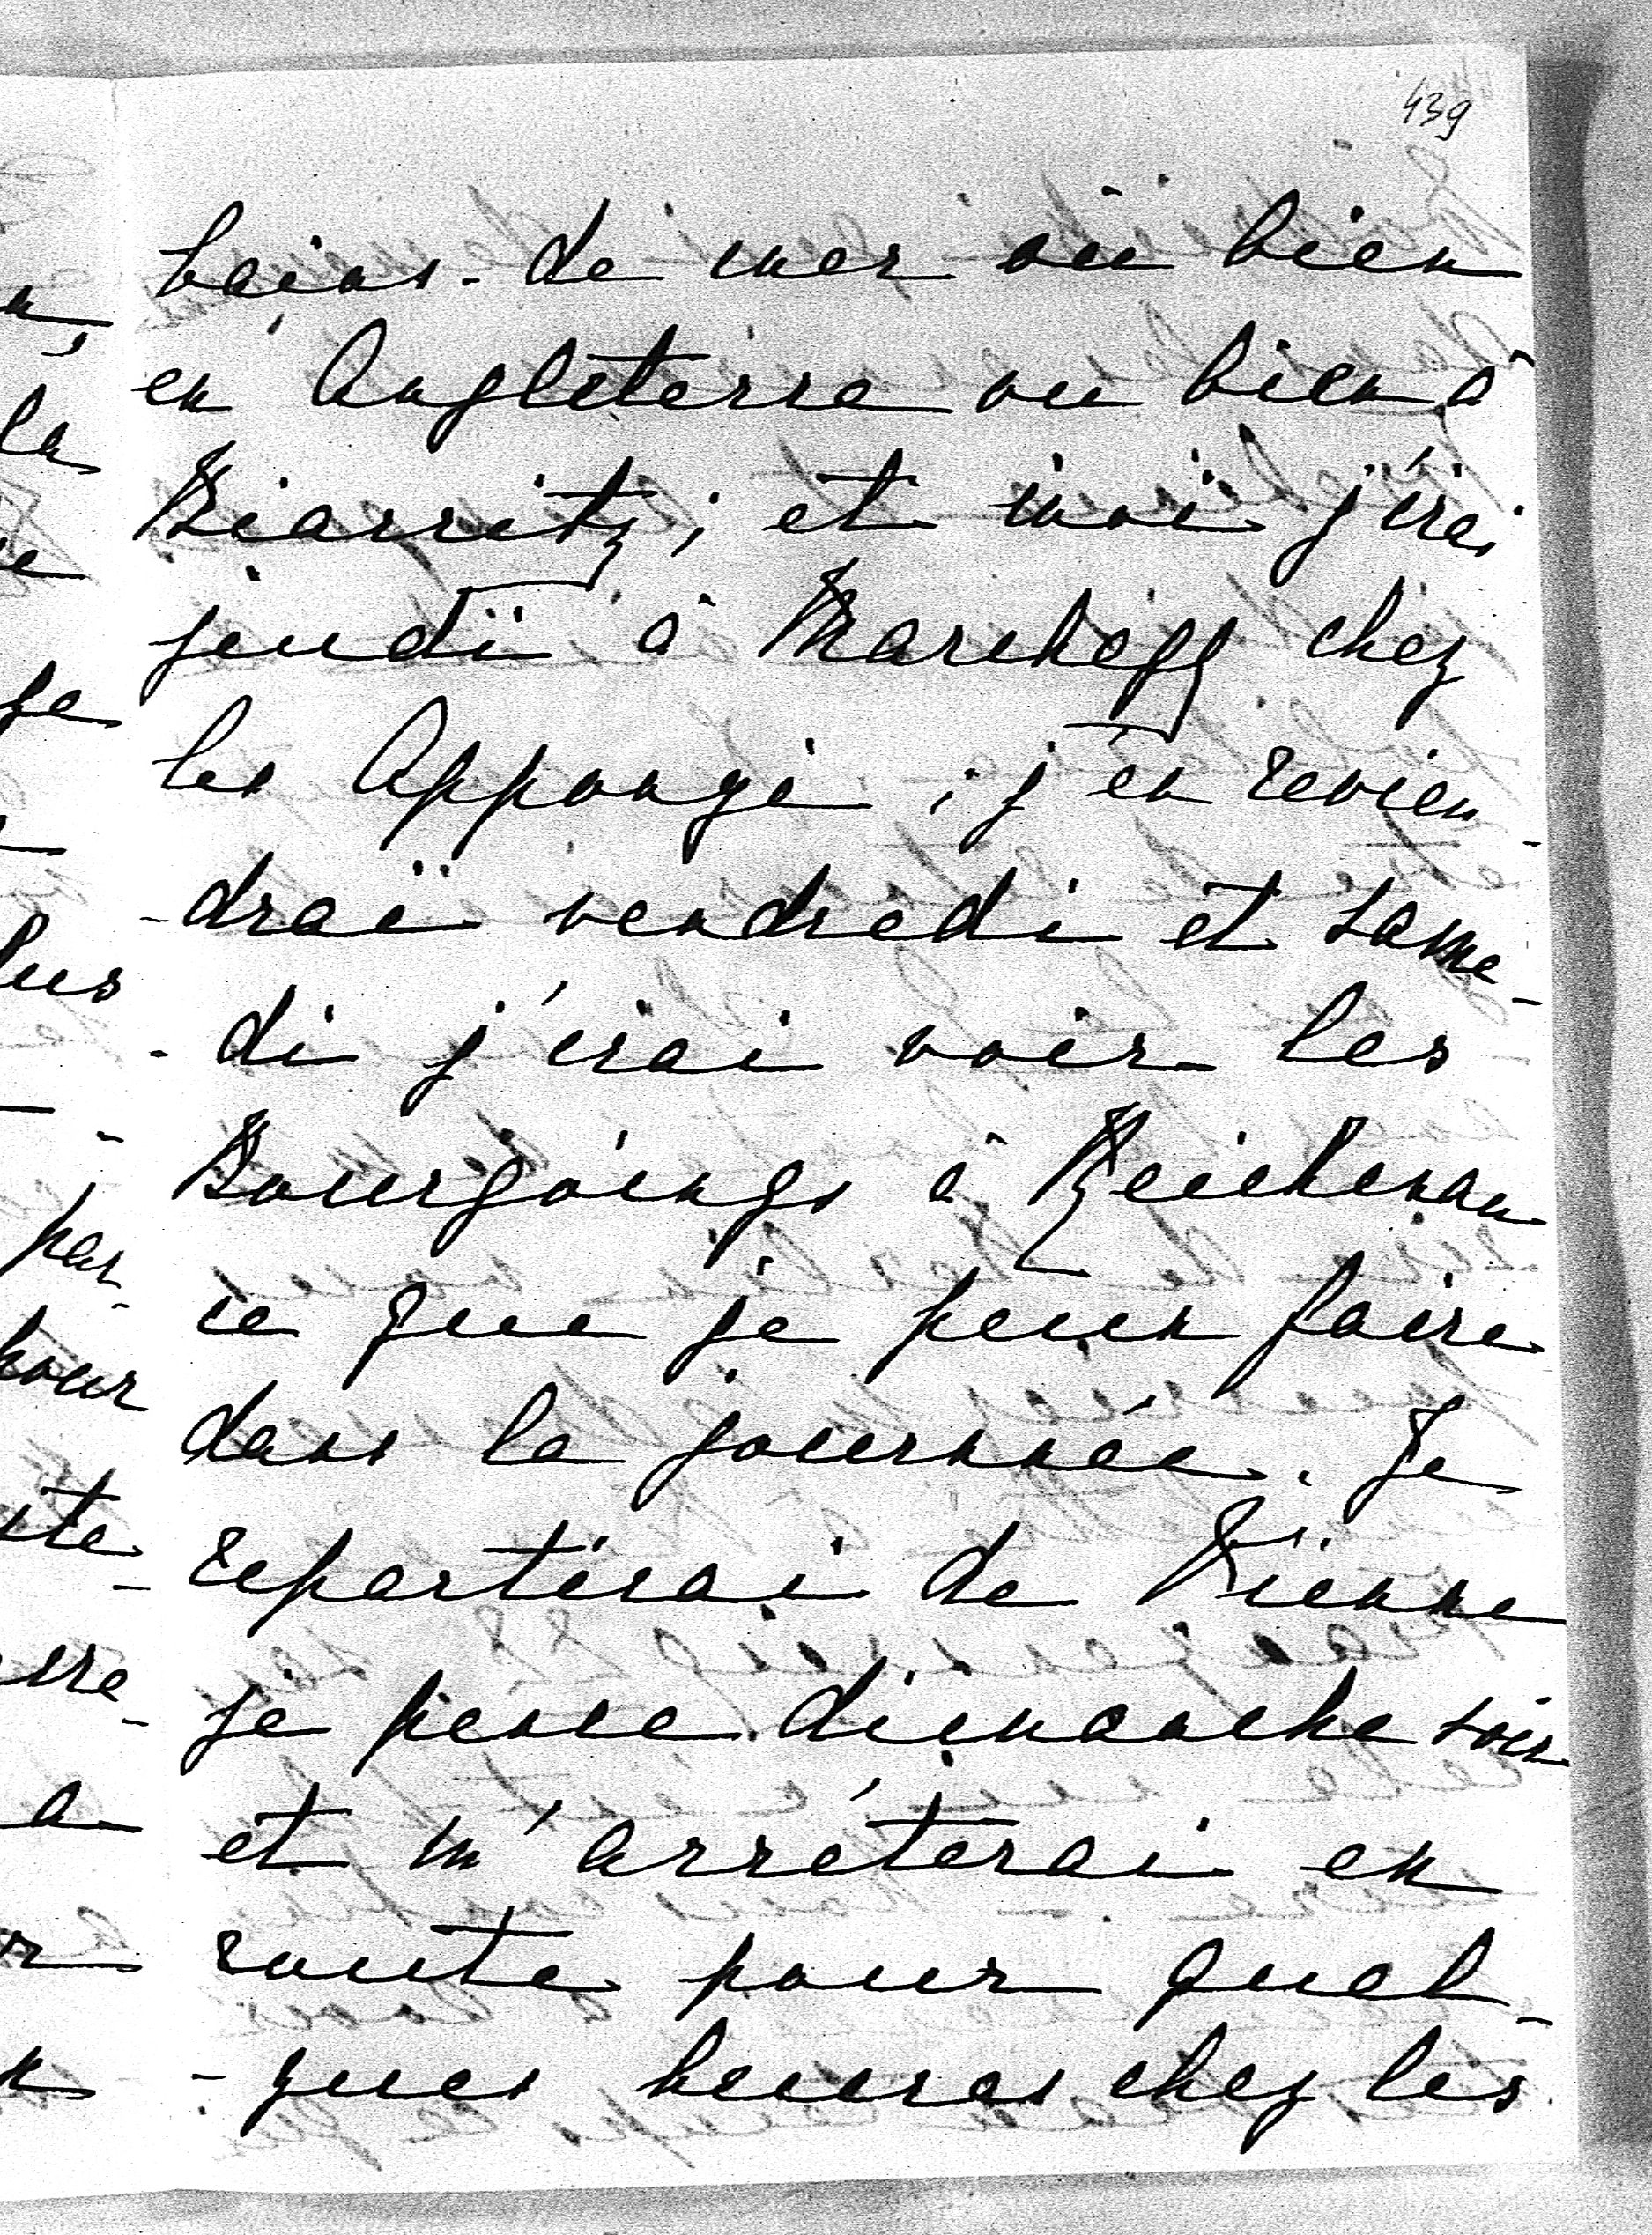 439
bains de mer ou bien
en Angleterre ou bien à
Biarritz ; et moi j'irai
jeudi à Marchegg chez
les Appongi ; j'en revien-
-drai vendredi et same-
-di j'irai voir les
Bourgoings à Reichenau
ce que je peux faire
dans la journée. Je
repartirai de Vienne
je pense dimanche soir
et m'arrêterai en
route pour quel-
-ques heures chez les